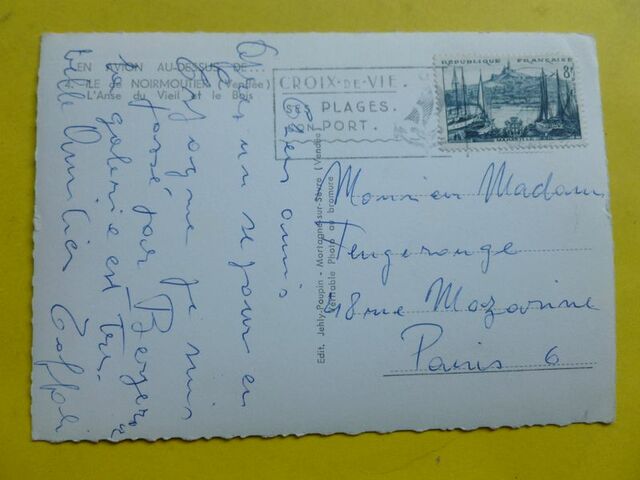 EN AVION AU-DESSUS DE...
ILE de NOIRMOUTIER (Vendée)
L'Anse du Vieil et le Bois
CROIX-DE-VIE.
SES PLAGES.
SON PORT.
RÉPUBLIQUE FRANÇAISE
8f
Edit. Jehly-Poupin - Mortagne-sur-Sèvre (Vendée)
Véritable Photo au bromure
Chers amis
un séjour en
je suis
passé par Bergerac
la galerie est très
belle Amitiés Toffoli
Monsieur Madame
Fougerouge
18 rue Mazarine
Paris 6